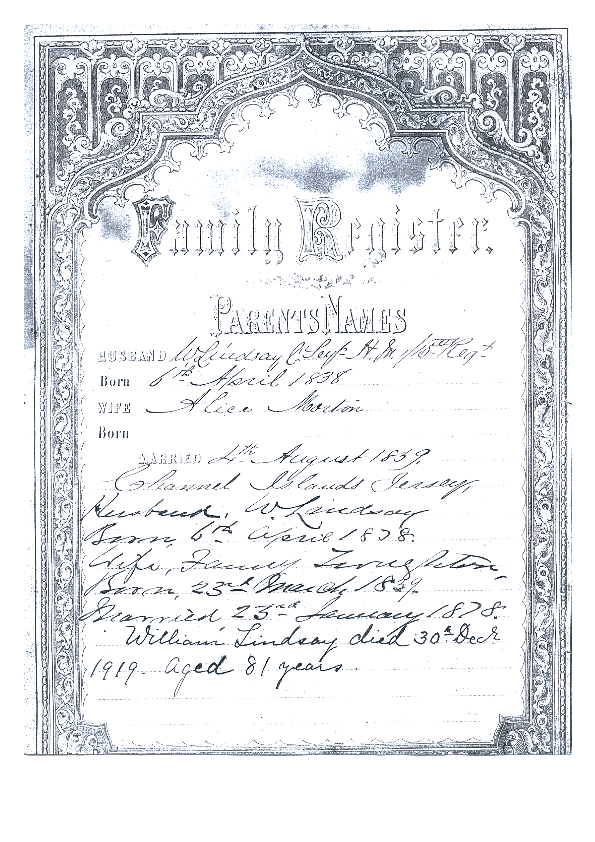 Family Register.
PARENTS NAMES
HUSBAND W Lindsay C. Serj. H. M. Regt
Born 6th April 1838
WIFE Alice Morton
Born
MARRIED 4th August 1859.
Channel Islands Jersey,
Husband, W. Lindsay
Born, 6th April 1838.
Wife, Fanny
Born, 23rd March, 1839.
Married 23rd January 1878.
William Lindsay died 30th Decr
1919 aged 81 years